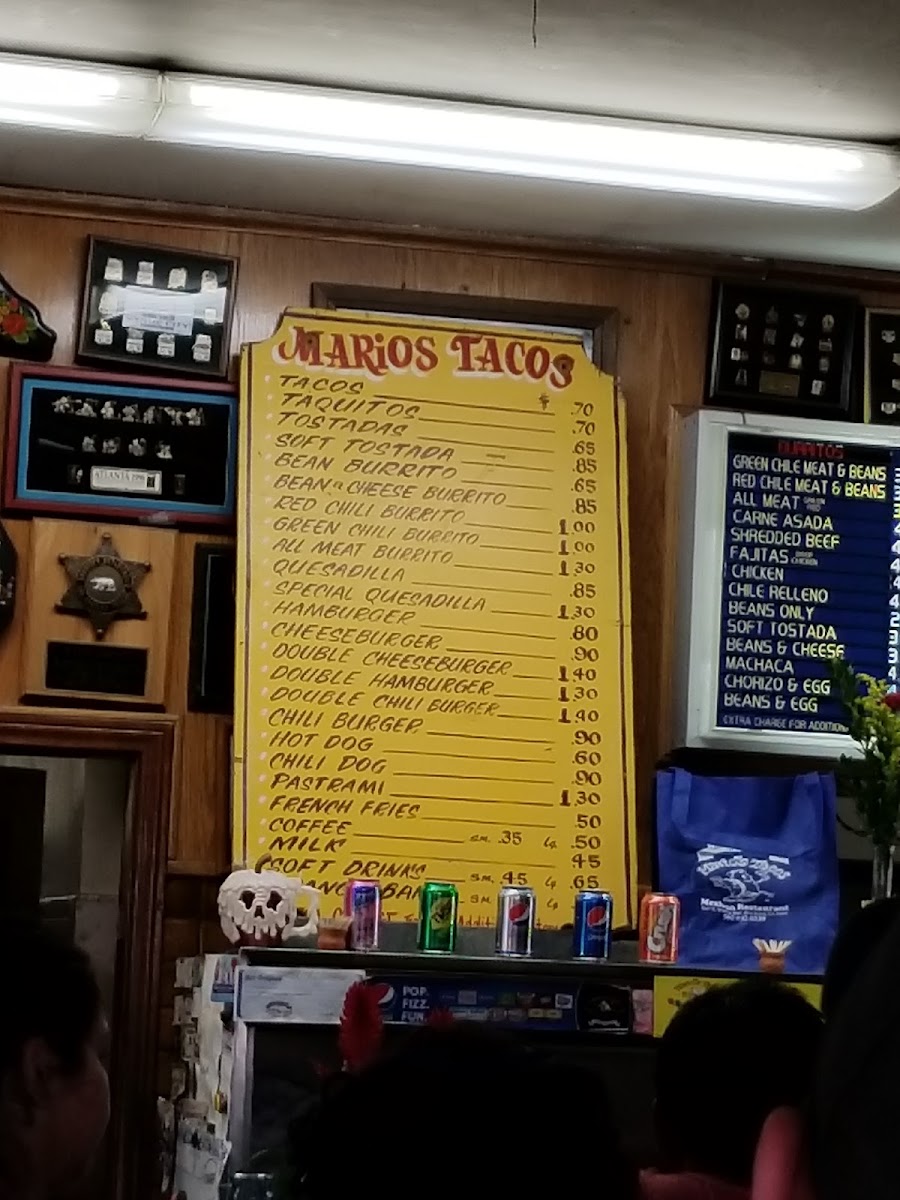 MARIOS TACOS
TACOS $ .70
TAQUITOS .70
TOSTADAS .65
SOFT TOSTADA .85
BEAN BURRITO .65
BEAN & CHEESE BURRITO .85
RED CHILI BURRITO 1.00
GREEN CHILI BURRITO 1.00
ALL MEAT BURRITO 1.30
QUESADILLA .85
SPECIAL QUESADILLA 1.30
HAMBURGER .80
CHEESEBURGER .90
DOUBLE CHEESEBURGER 1.40
DOUBLE HAMBURGER 1.30
DOUBLE CHILI BURGER 1.40
CHILI BURGER .90
HOT DOG .60
CHILI DOG .90
PASTRAMI 1.30
FRENCH FRIES .50
COFFEE SM. .35 LG .50
MILK 45
SOFT DRINKS SM. 45 LG .65
SM. LG
BURRITOS
GREEN CHILE MEAT & BEANS
RED CHILE MEAT & BEANS
ALL MEAT GREEN RED
CARNE ASADA
SHREDDED BEEF
FAJITAS BEEF CHICKEN
CHICKEN
CHILE RELLENO
BEANS ONLY
SOFT TOSTADA
BEANS & CHEESE
MACHACA
CHORIZO & EGG
BEANS & EGG
EXTRA CHARGE FOR ADDITION
ATLANTA 1996
Mexican Restaurant
Crush
POP.
FIZZ.
FUN.